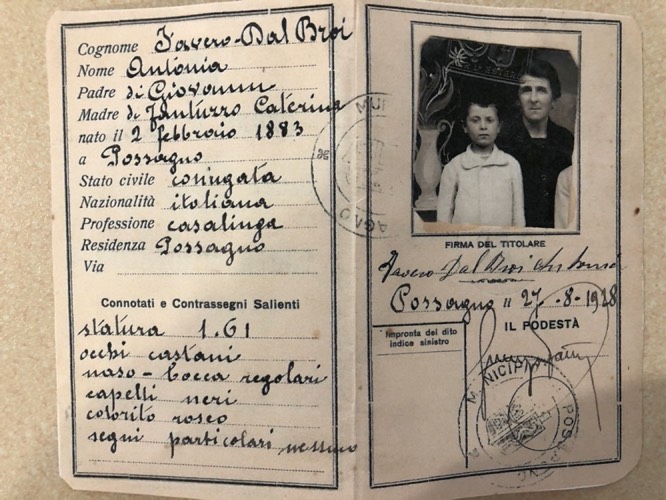 Cognome Favero-Dal Broi
Nome Antonia
Padre di Giovanni
Madre di Fantuzzo Caterina
nato il 2 febbraio 1883
a Possagno
Stato civile coniugata
Nazionalità italiana
Professione casalinga
Residenza Possagno
Via
Connotati e Contrassegni Salienti
statura 1.61
occhi castani
naso - bocca regolari
capelli neri
colorito roseo
segni particolari nessuno
FIRMA DEL TITOLARE
Favero Dal Broi Antonia
Possagno li 27-8-1928
IL PODESTÀ
Impronta del dito
indice sinistro
MU
AGNO
MUNICIPI
POSS